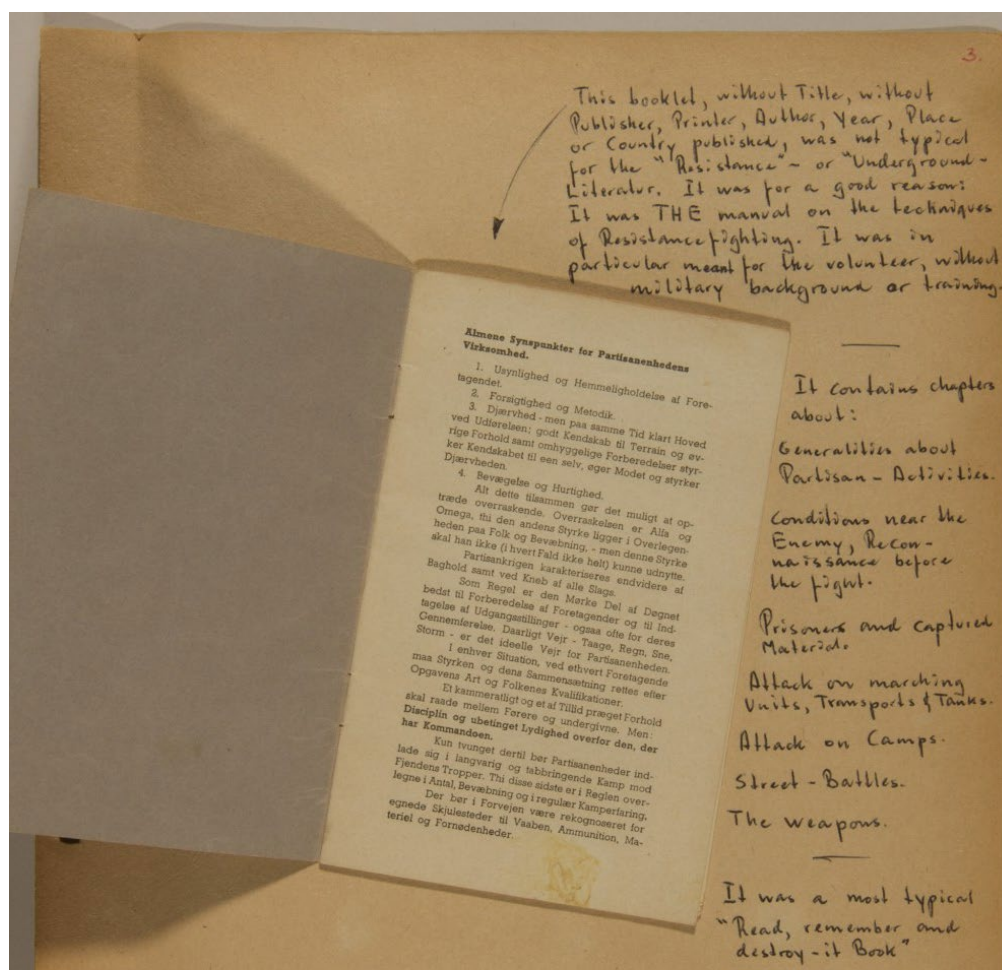 3.
This booklet, without Title, without
Publisher, Printer, Author, Year, Place
or Country published, was not typical
for the "Resistance"- or "Underground-
Literatur. It was for a good reason:
It was THE manual on the techniques
of Resistancefighting. It was in
particular meant for the volunteer, without
military background or training.
Almene Synspunkter for Partisanenhedens
Virksomhed.
1. Usynlighed og Hemmeligholdelse af Fore-
tagendet.
2. Forsigtighed og Metodik.
3. Djærvhed - men paa samme Tid klart Hoved
ved Udførelsen; godt Kendskab til Terrain og øv-
rige Forhold samt omhyggelige Forberedelser styr-
ker Kendskabet til een selv, øger Modet og styrker
Djærvheden.
4. Bevægelse og Hurtighed.
Alt dette tilsammen gør det muligt at op-
træde overraskende. Overraskelsen er Alfa og
Omega, thi den andens Styrke ligger i Overlegen-
heden paa Folk og Bevæbning, - men denne Styrke
skal han ikke (i hvert Fald ikke helt) kunne udnytte.
Partisankrigen karakteriseres endvidere af
Baghold samt ved Kneb af alle Slags.
Som Regel er den Mørke Del af Døgnet
bedst til Forberedelse af Foretagender og til Ind-
tagelse af Udgangsstillinger - ogsaa ofte for deres
Gennemførelse. Daarligt Vejr - Taage, Regn, Sne,
Storm - er det ideelle Vejr for Partisanenheden.
I enhver Situation, ved ethvert Foretagende
maa Styrken og dens Sammensætning rettes efter
Opgavens Art og Folkenes Kvalifikationer.
Et kammeratligt og et af Tillid præget Forhold
skal raade mellem Førere og undergivne. Men:
Disciplin og ubetinget Lydighed overfor den, der
har Kommandoen.
Kun tvunget dertil bør Partisanenheder ind-
lade sig i langvarig og tabbringende Kamp mod
Fjendens Tropper. Thi disse sidste er i Reglen over-
legne i Antal, Bevæbning og i regulær Kamperfaring.
Der bør i Forvejen være rekognoseret for
egnede Skjulesteder til Vaaben, Ammunition, Ma-
teriel og Fornødenheder.
It contains chapters
about:
Generalities about
Partisan - Activities.
Conditions near the
Enemy, Recon-
naissance before
the fight.
Prisoners and captured
Material.
Attack on marching
Units, Transports & Tanks.
Attack on Camps.
Street - Battles.
The weapons.
It was a most typical
"Read, remember and
destroy - it Book"